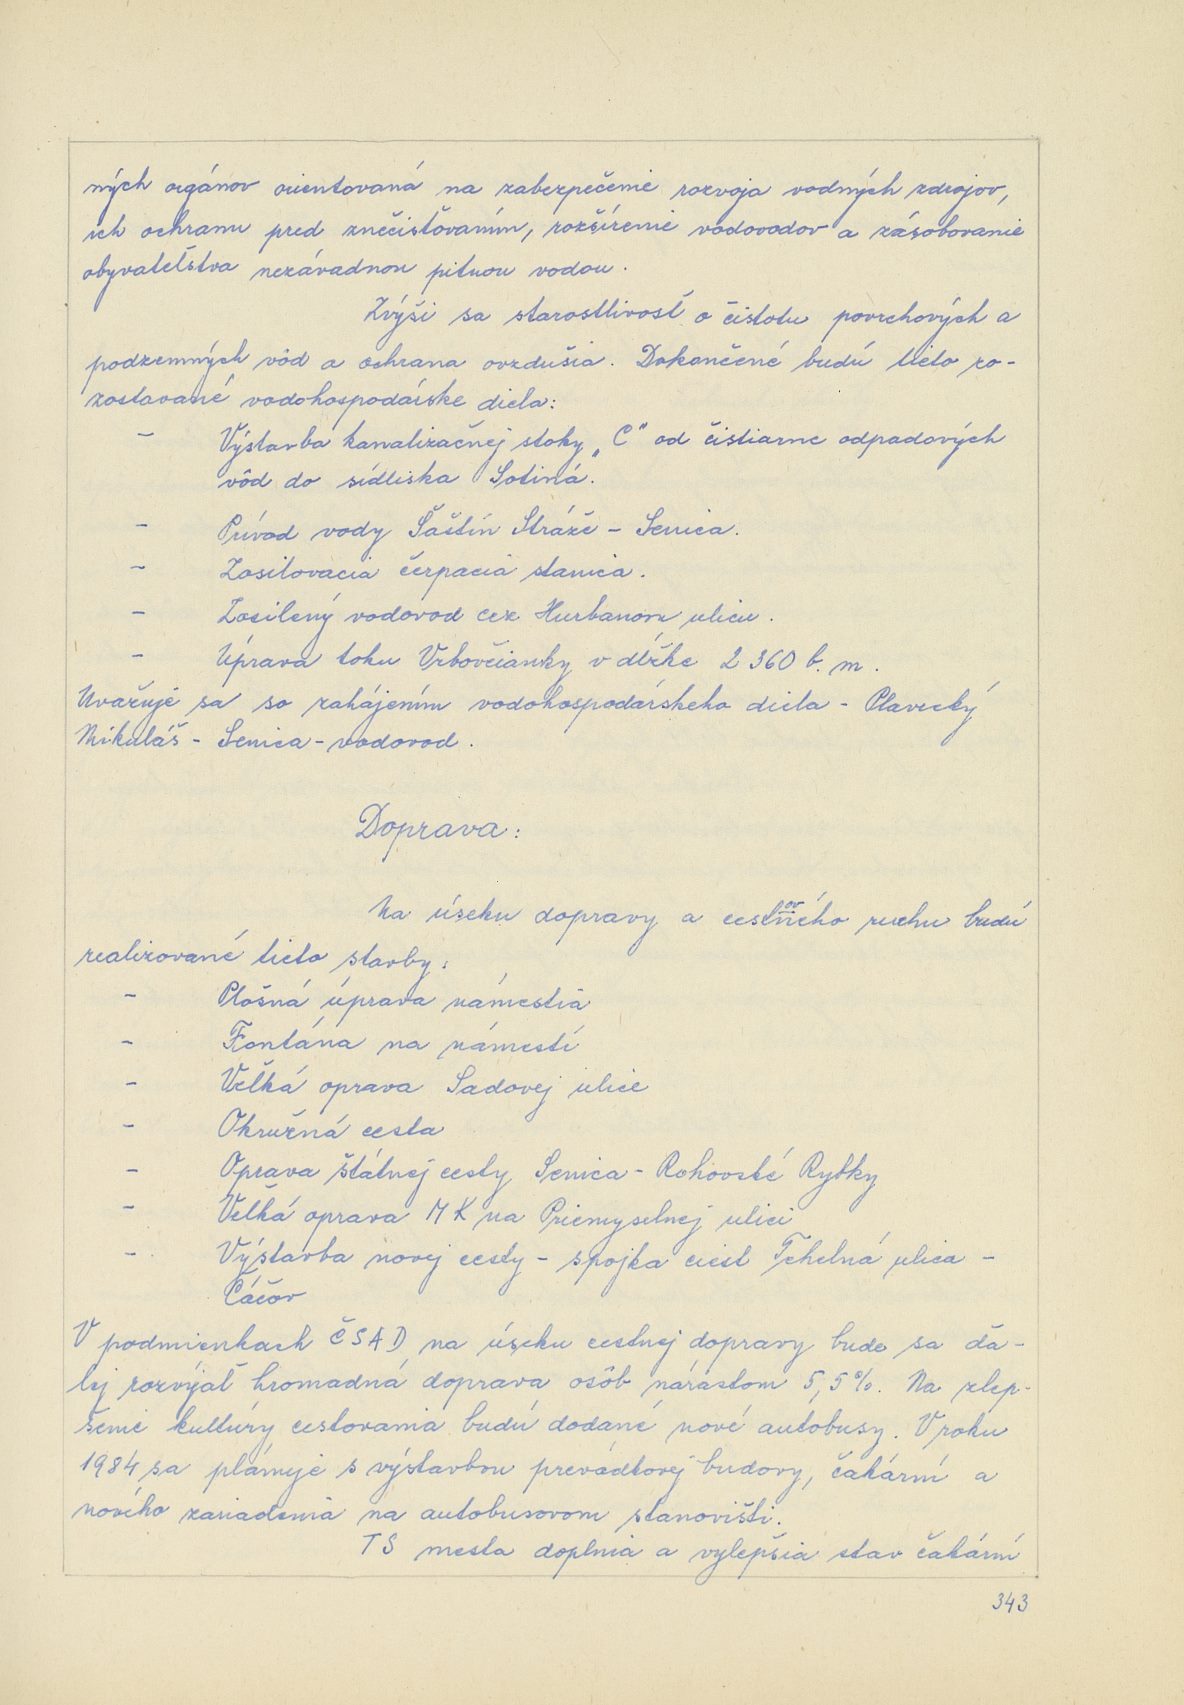 ných orgánov orientovaná na zabezpečenie rozvoja vodných zdrojov,
ich ochranu pred znečisťovaním, rozšírenie vodovodov a zásobovanie
obyvateľstva nezávadnou pitnou vodou.
Zvýši sa starostlivosť o čistotu povrchových a
podzemných vôd a ochrana ovzdušia. Dokončené budú tieto ro-
zostavané vodohospodárske diela:
- Výstavba kanalizačnej stoky „C" od čistiarne odpadových
vôd do sídliska Sotiná.
- Prívod vody Šaštín Stráže - Senica.
- Zosilovacia čerpacia stanica.
- Zosilený vodovod cez Hurbanovu ulicu.
- Úprava toku Vrbovčianky v dĺžke 2 360 b. m.
Uvažuje sa so zahájením vodohospodárskeho diela - Plavecký
Mikuláš - Senica - vodovod.
Doprava:
Na úseku dopravy a cestného ruchu budú
realizované tieto stavby:
- Plošná úprava námestia
- Fontána na námestí
- Veľká oprava Sadovej ulice
- Okružná cesta
- Oprava štátnej cesty Senica - Rohovské Rybky
- Veľká oprava MK na Priemyselnej ulici
- Výstavba novej cesty - spojka ciest Tehelná ulica -
Čáčov
V podmienkach ČSAD na úseku cestnej dopravy bude sa ďa-
lej rozvýjať hromadná doprava osôb nárastom 5,5%. Na zlep-
šenie kultúry cestovania budú dodané nové autobusy. V roku
1984 sa plánuje s výstavbou prevádkovej budovy, čakární a
nového zariadenia na autobusovom stanovišti.
TS mesta doplnia a vylepšia stav čakární
343